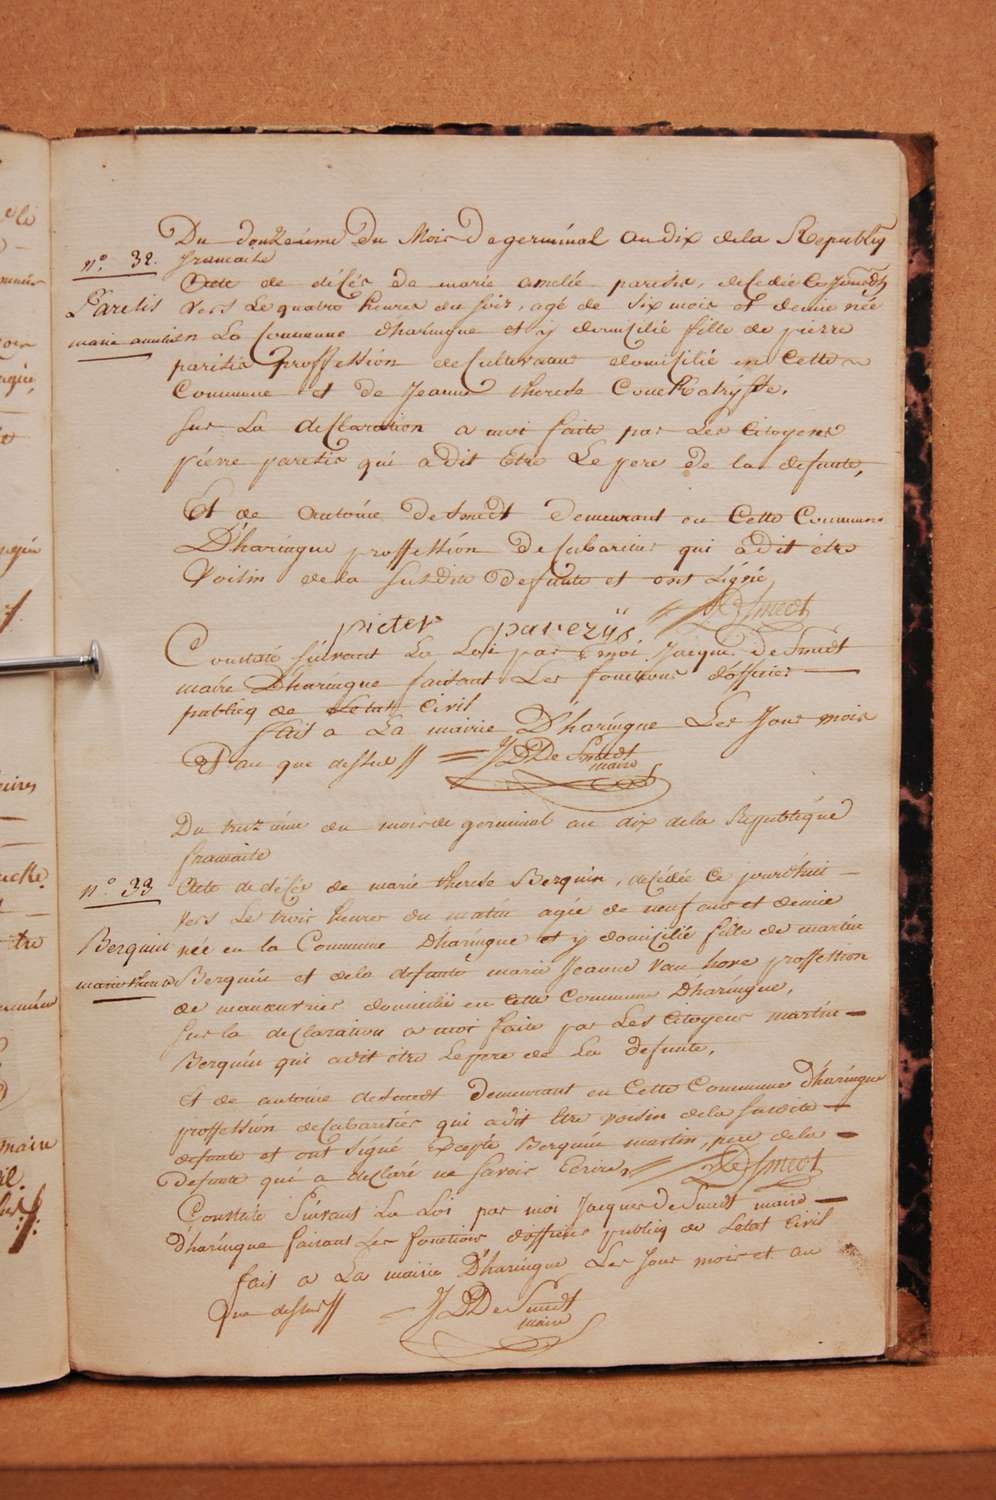 Du douzeieme Du Mois De germinal an dix de la Republiq
francaise
n.° 32.
Paresis
marie amelie
Acte de décés de marie amelie paresis, décédée ce jourdh
vers le quatre heures du soir, agé de six mois et demie née
en La Commune Dharingue et y domicilié fille de pierre
paresis proffession de Cultivateur domicilié en Cette
Commune et de Jeanne therese
Sur La declaration a moi faite par Les Citoyens
pierre paresis qui adit Etre Le pere de la defunte,
Et de Antoine De Smedt Demeurant en Cette Commune
D'haringue proffession De Cabaretier qui a dit être
Voisin de la Susdite Defunte et ont Signé
pieter parezys. ADe Smedt
Constaté Suivant La Loi par moi Jacque De Smedt
maire Dharingue faisant Les fonctions dofficier
publicq de Letat Civil
fait a La mairie D'haringue Les Jour mois
Et an que dessus // = J De Smedt
maire
Du treizieme du mois de germinal an dix de la Republique
francaise
n.° 33
Berquin
marie therese
Acte de décés de marie therese Berquin, décédée Ce jourdhui
vers Le trois heures du matin agée de neuf ans et demie
née en la Commune Dharingue et y domicilié fille de martin
Berquin et de la defunte marie Jeanne Van hove proffession
de manouvrier domicilié en Cette Commune Dharingue,
Sur la declaration a moi faite par Les Citoyens martin
Berquin qui adit être Le pere de La defunte,
Et de antoine desmedt Demeurant en Cette Commune D'haringue
proffession de Cabaretier qui adit Etre voisin de la Susdite
defunte et ont Signé Excepté Berquin martin, pere de la
Defunte qui a declaré ne Savoir Ecrire, ADe Smedt
Constaté Suivant La Loi par moi Jacques De Smedt maire
Dharingue faisant Les fonctions dofficier publiq de Letat Civil
fait a La mairie D'haringue Les Jour mois et an
Que dessus // = J De Smedt
maire